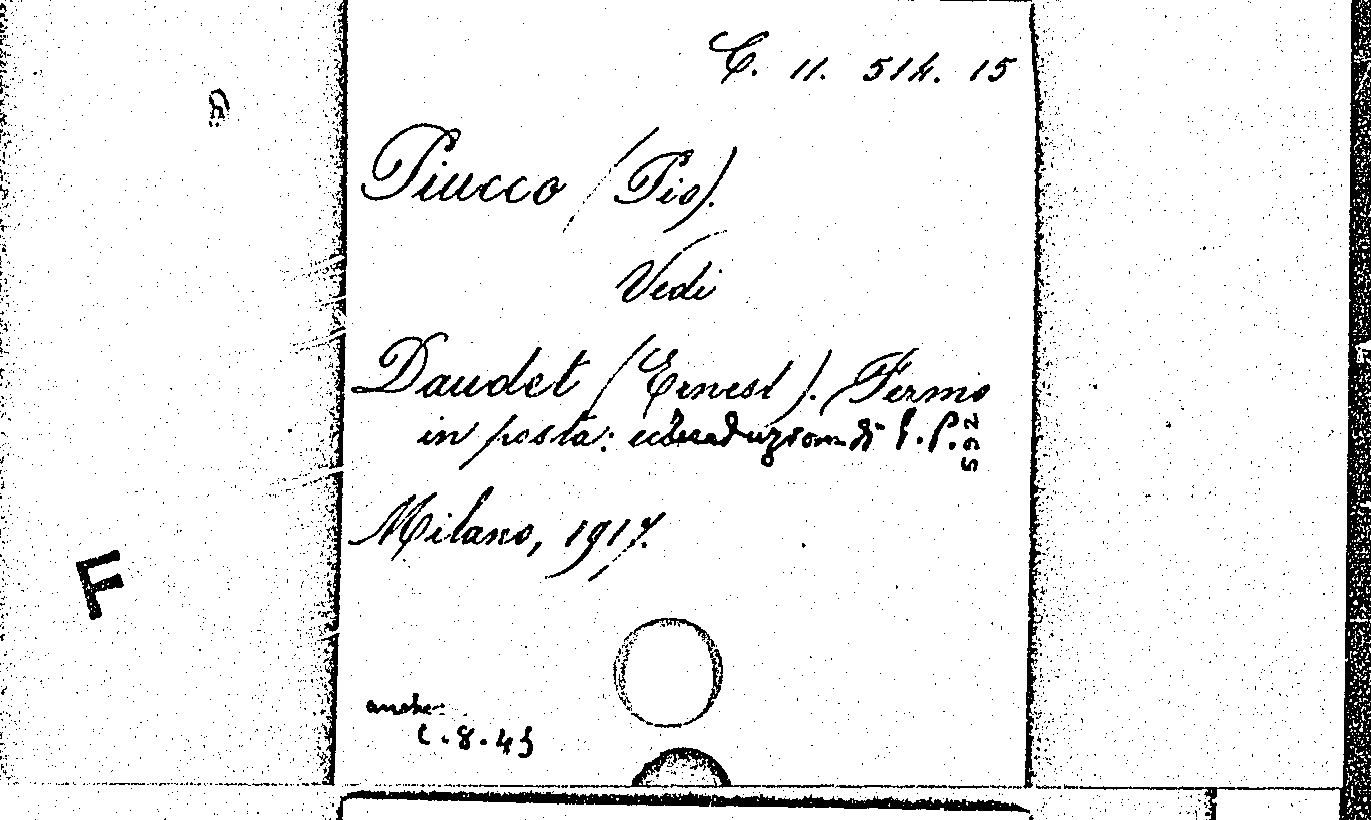 C. 11. 514. 15
Piucco (Pio).
Vedi
Daudet (Ernest). Fermo
in posta: traduzione di P.
592
Milano, 1917.
F
anche:
C.8.45